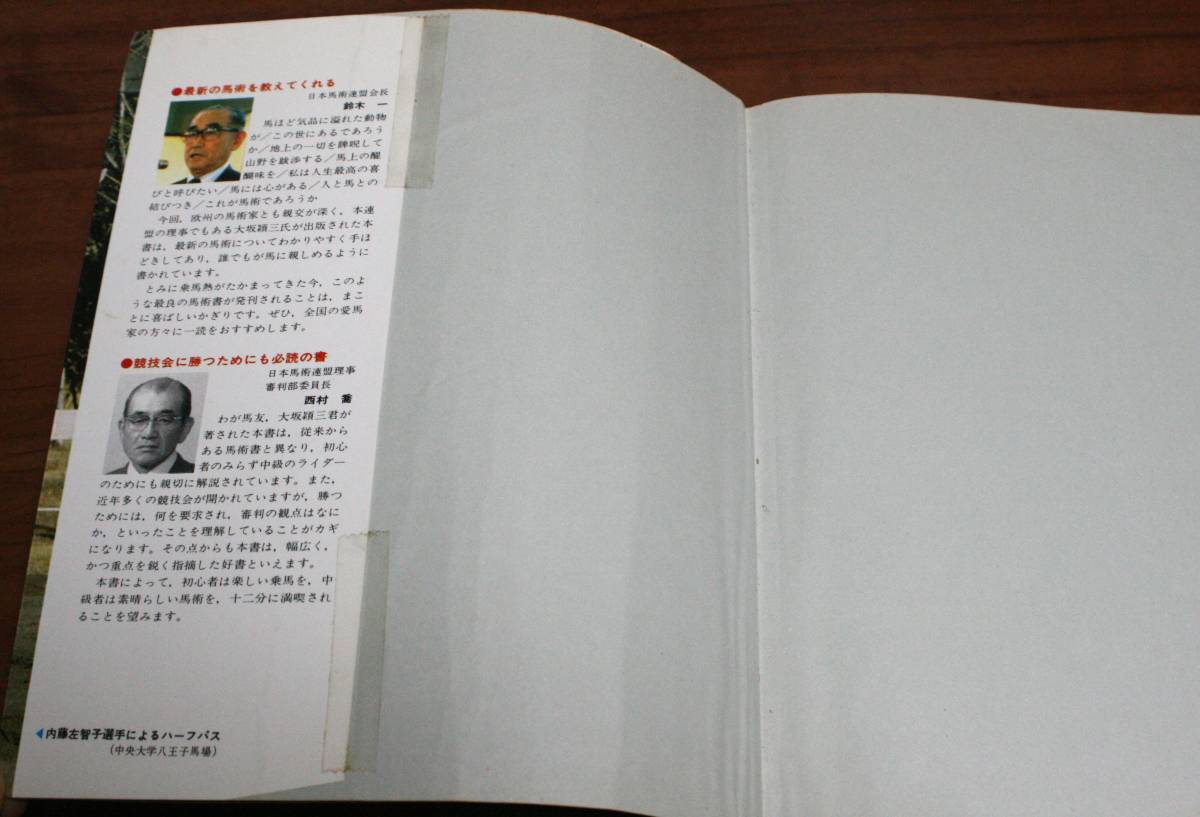 ●最新の馬術を教えてくれる
日本馬術連盟会長
鈴木 一
馬ほど気品に溢れた動物
が／この世にあるであろう
か／地上の一切を睥睨して
山野を跋渉する／馬上の醍
醐味を／私は人生最高の喜
びと呼びたい／馬には心がある／人と馬との
結びつき／これが馬術であろうか
今回，欧州の馬術家とも親交が深く，本連
盟の理事でもある大坂頴三氏が出版された本
書は，最新の馬術についてわかりやすく手ほ
どきしてあり，誰でもが馬に親しめるように
書かれています。
とみに乗馬熱がたかまってきた今，このよ
うな最良の馬術書が発刊されることは，まこ
とに喜ばしいかぎりです。ぜひ，全国の愛馬
家の方々に一読をおすすめします。
●競技会に勝つためにも必読の書
日本馬術連盟理事
審判部委員長
西村 喬
わが馬友，大坂頴三君が
著された本書は，従来から
ある馬術書と異なり，初心
者のみらず中級のライダー
のためにも親切に解説されています。また，
近年多くの競技会が開かれていますが，勝つ
ためには，何を要求され，審判の観点はなに
か，といったことを理解していることがカギ
になります。その点からも本書は，幅広く，
かつ重点を鋭く指摘した好書といえます。
本書によって，初心者は楽しい乗馬を，中
級者は素晴らしい馬術を，十二分に満喫され
ることを望みます。
◀内藤左智子選手によるハーフパス
（中央大学八王子馬場）